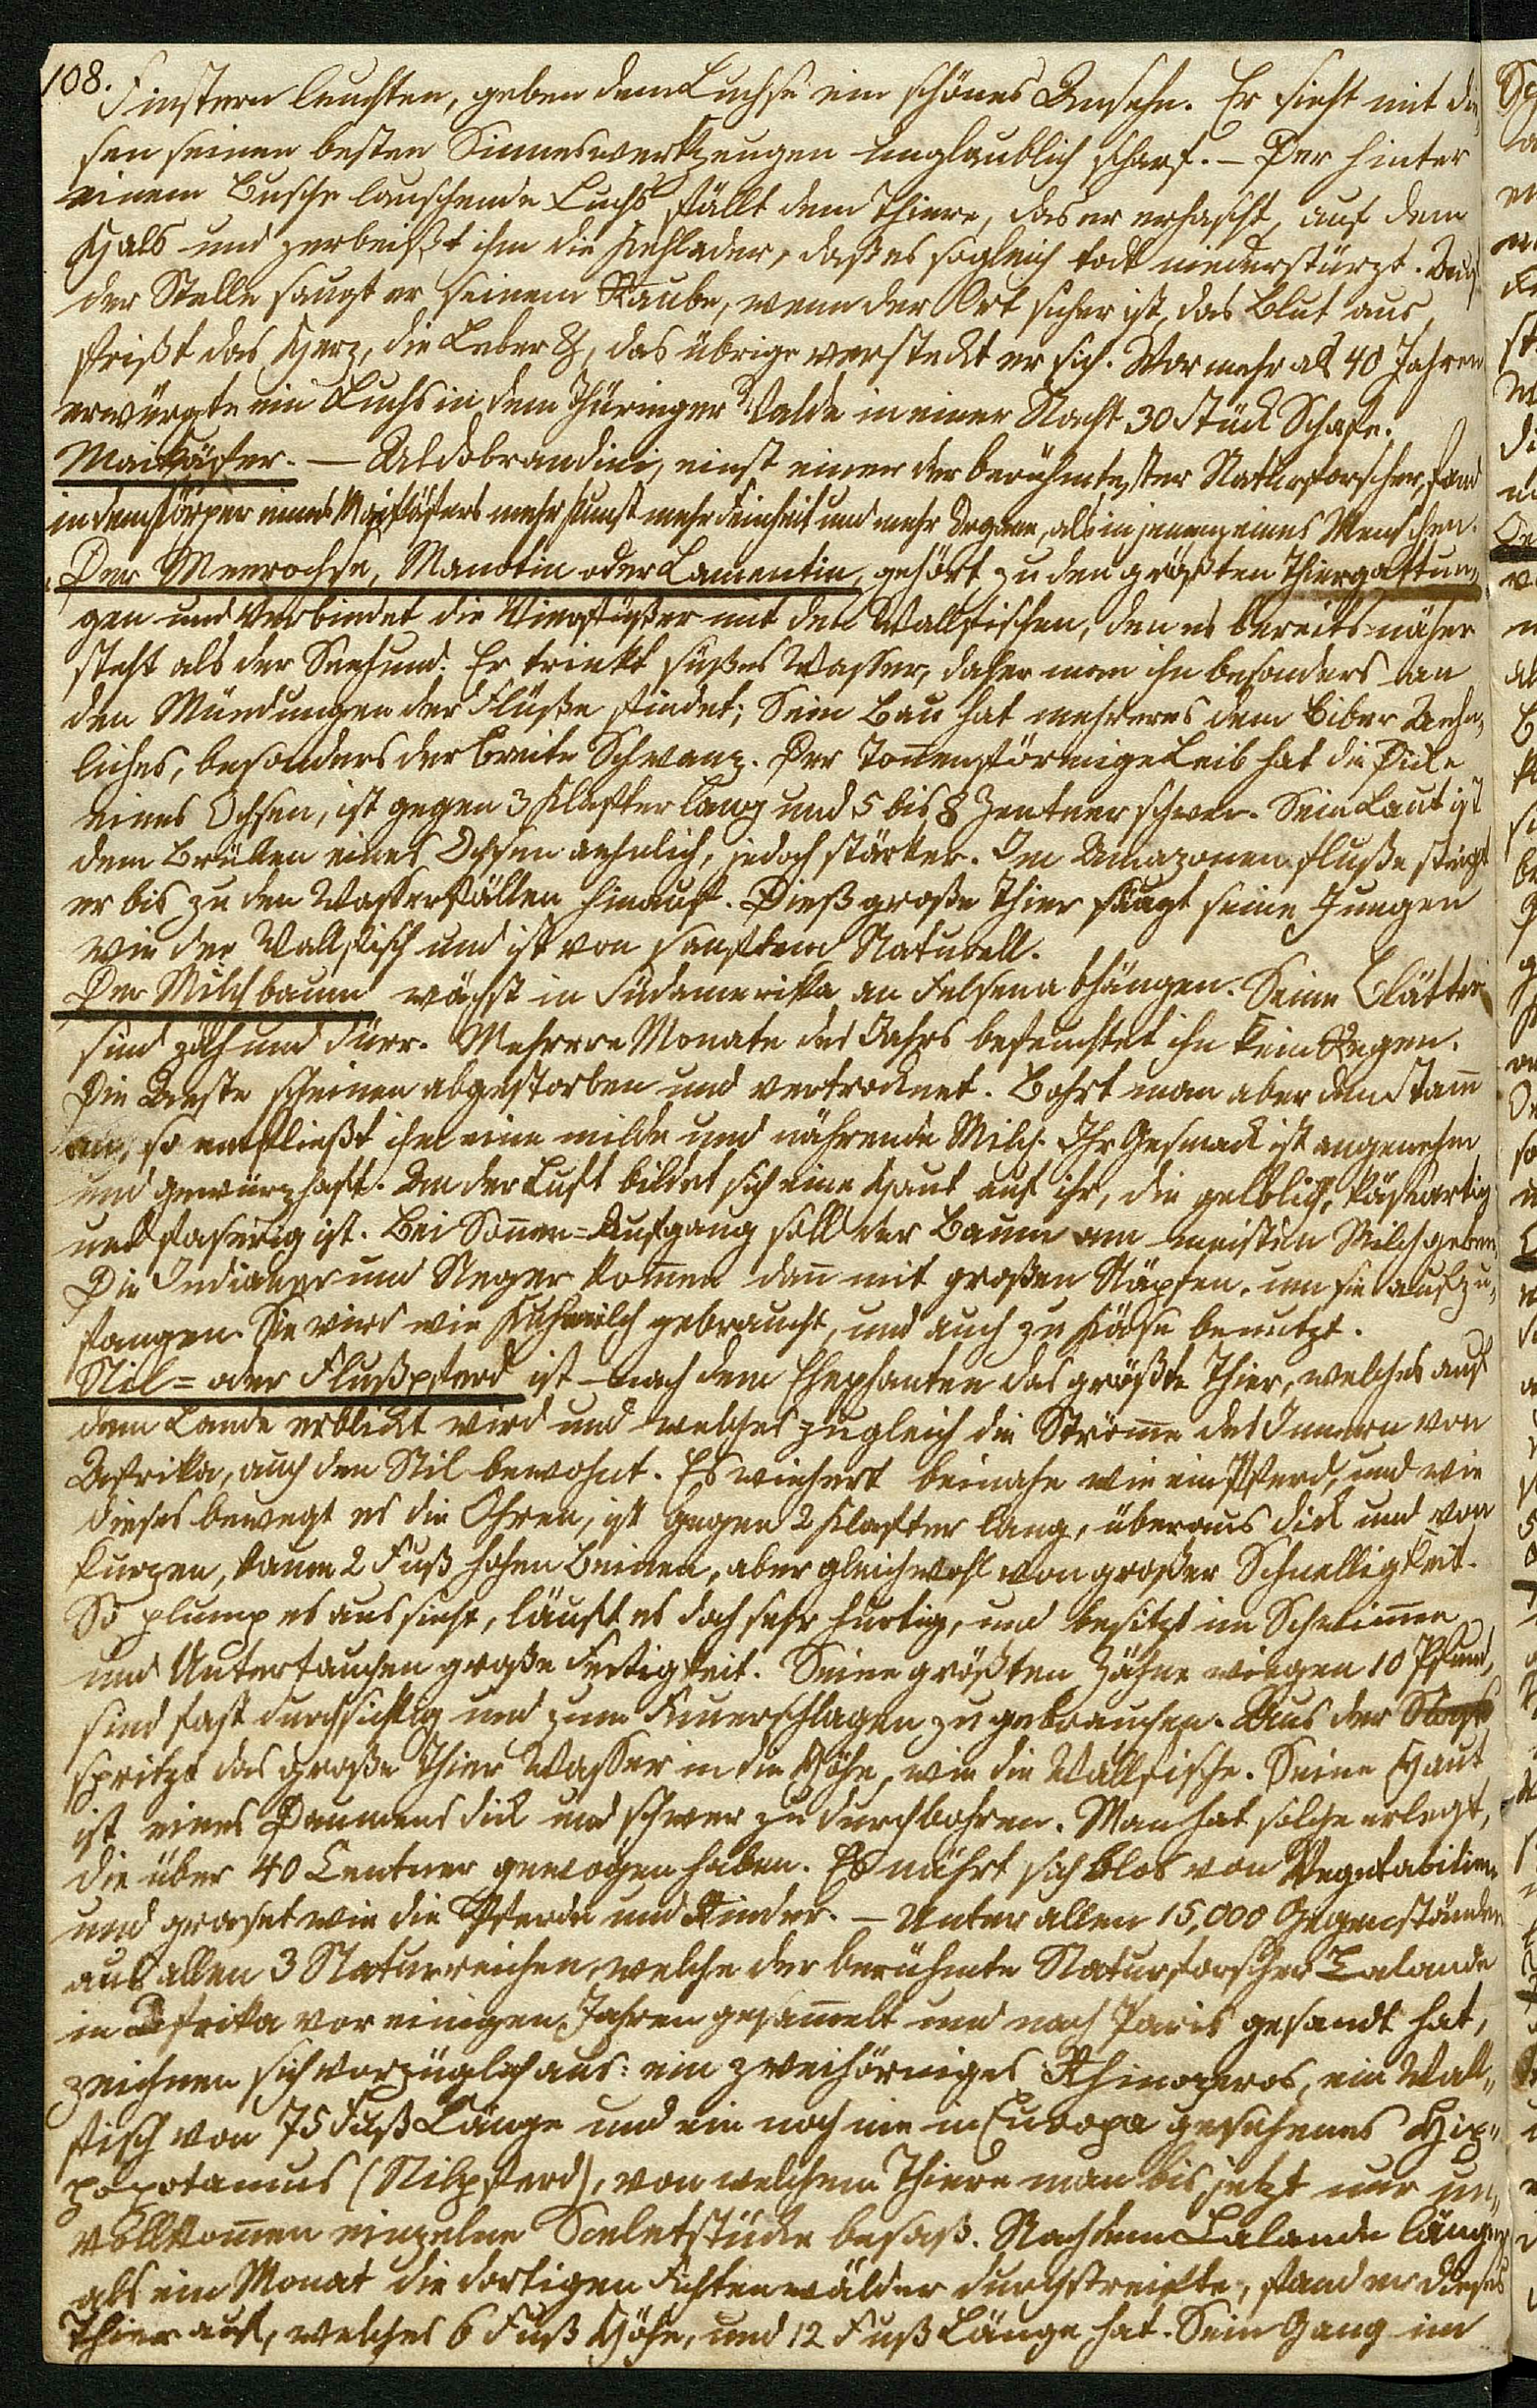 108.
Finstern leuchten, geben dem Luchse ein schönes Ansehn. Er sieht mit die„
sen seinen besten Sinneswerkzeugen unglaublich scharf. – Der hinter
einem Busche lauschende Luchs fällt dem Thiere, das er erhascht, auf dem
Hals und zerbeißt ihm die Kehlader, daß es sogleich todt niederstürzt. Auf
der Stelle saugt er seinem Raube, wenn der Ort sicher ist, das Blut aus,
frißt das Herz, die Leber &, das übrige versteckt er sich. Vor mehr als 40 Jahren
erwürgte ein Luchs in dem Thüringer Walde in einer Nacht 30 Stück Schafe.
Maikäfer. — Aldobrandini, einst einer der berühmtester Naturforscher, fand
in dem Körper eines Maikäfers mehr Kunst mehr Feinheit und mehr Organe, als in jenem eines Menschen.
Der Meerochse, Manotin oder Lamentin, gehört zu den größten Thiergattun„
gen und verbindet die Vierfüßer mit den Wallfischen, den es bereits näher
steht als der Seehund. Er trinkt süßes Wasser, daher man ihn besonders an
den Mündungen der Flüße findet; Sein Bau hat mehreres dem Biber Aehn„
liches, besonders der breite Schwanz. Der Tonnenförmige Leib hat die Dicke
eines Ochsen, ist gegen 3 Klafter lang und 5 bis 8 Zentner schwer. Sein Laut ist
dem Brüllen eines Ochsen aehnlich, jedoch stärker. Im Amazonenfluße steigt
er bis zu den Wasserfällen hinauf. Dieß große Thier säugt seine Jungen
wie der Wallfisch und ist von sanftem Naturell.
Der Milchbaum wächst in Südamerika an Felsenabhängen. Seine Blätter
sind zäh und dürr. Mehrere Monate des Jahrs befeuchtet ihn kein Regen.
Die Aeste scheinen abgestorben und vertrocknet. Bohrt man aber den Stam̅
an, so entfließt ihm eine milde und nährende Milch. Ihr Gesmack ist angenehm
und gewürzhaft. An der Luft bildet sich eine Haut auf ihr, die gelblich, käseartig
und faserig ist. Bei Son̅en=Aufgang soll der Baum am meisten Milch geben.
Die Indianer und Neger kom̅en dan̅ mit großen Näpfen, um sie aufzu„
fangen. Sie wird wie Kuhmilch gebraucht, und auch zu Käse benutzt.
Nil= oder Flußpferd ist nach dem Elephanten das größte Thier, welches auf
dem Lande erblickt wird und welches zugleich die Ström̅e des Innern von
Afrika, auch den Nil bewohnt. Es wiehert beinahe wie ein Pferd, und wie
dieses bewegt es die Ohren, ist gegen 2 Klafter lang, überaus dick und von
kurzen, kaum 2 Fuß hohen Beinen, aber gleichwohl von großer Schnelligkeit.
So plump es aussieht, läuft es doch sehr hurtig, und besitzt im Schwim̅en
und Untertauchen große Fertigkeit. Seine größten Zähne wiegen 10 Pfund,
sind fast durchsichtig und zum Feuerschlagen zu gebrauchen. Aus der Nase
spritzt das große Thier Wasser in die Höhe, wie die Wallfische. Seine Haut
ist eines Daumens dick und schwer zu durchbohren. Man hat solche erlegt,
die über 40 Centner gewogen haben. Es nährt sich blos von Vegetabilien
und graset wie die Pferde und Rinder. – Unter allen 15,000 Gegenständen
aus allen 3 Naturreichen, welche der berühmte Naturforscher Lalande
in Afrika vor einigen Jahren gesam̅elt und nach Paris gesandt hat,
zeichnen sich vorzüglich aus: ein zweihörniges Rhinozeros, ein Wall„
fisch von 75 Fuß Länge und ein noch nie in Europa gesehenes Hip„
popotamus (Nilpferd), von welchem Thiere man bis jetzt nur un„
vollkom̅en einzelne Sceletstücke besaß. Nachdem Lalande länger
als ein Monat die dortigen Fichtenwälder durchstreifte, fand er dieses
Thier auf, welches 6 Fuß Höhe, und 12 Fuß Länge hat. Sein Gang im